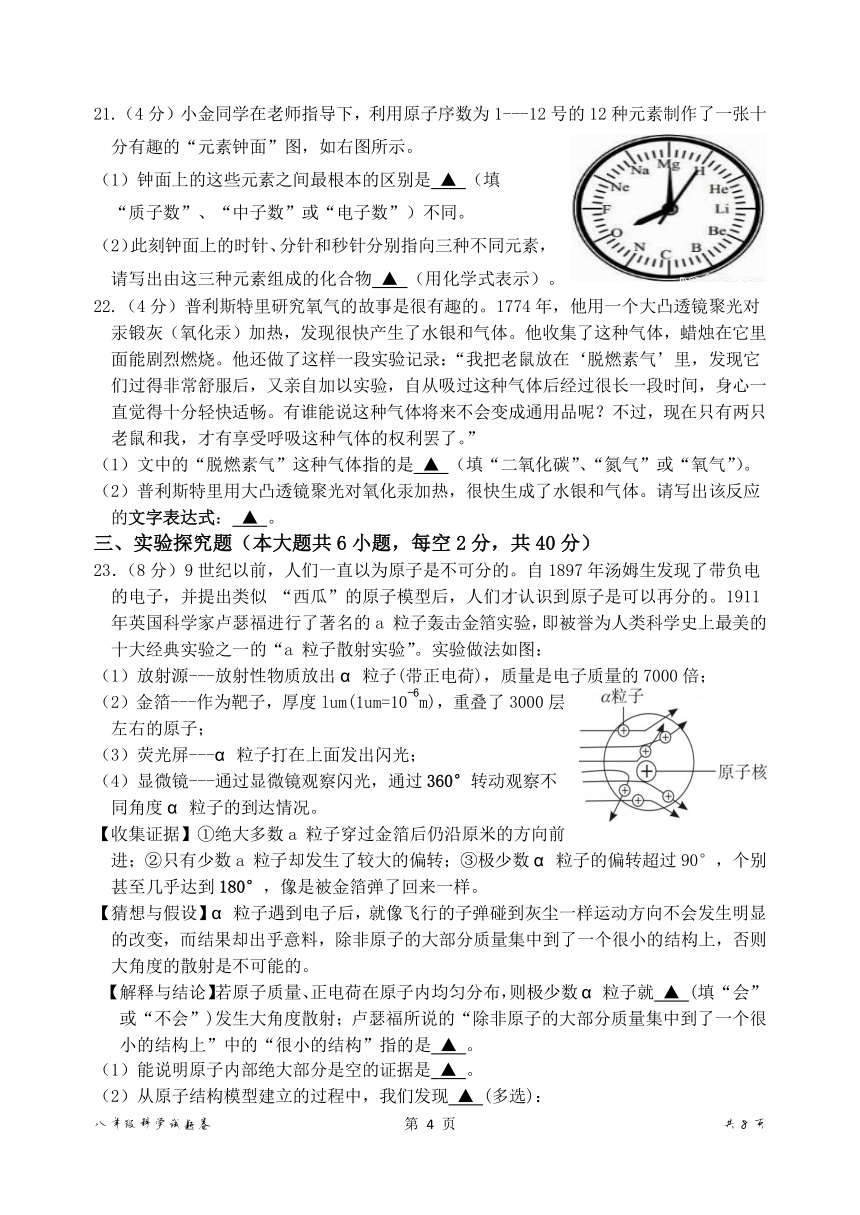 21.（4 分）小金同学在老师指导下，利用原子序数为 1---12 号的 12 种元素制作了一张十
分有趣的“元素钟面”图，如右图所示。
（1）钟面上的这些元素之间最根本的区别是 ▲ （填
“质子数”、“中子数”或“电子数”）不同。
（2）此刻钟面上的时针、分针和秒针分别指向三种不同元素，
请写出由这三种元素组成的化合物 ▲ （用化学式表示）。
Mg
H
He
Li
Be
B
C
N
O
F
Ne
Na
22.（4 分）普利斯特里研究氧气的故事是很有趣的。1774 年，他用一个大凸透镜聚光对
汞锻灰（氧化汞）加热，发现很快产生了水银和气体。他收集了这种气体，蜡烛在它里
面能剧烈燃烧。他还做了这样一段实验记录：“我把老鼠放在‘脱燃素气’里，发现它
们过得非常舒服后，又亲自加以实验，自从吸过这种气体后经过很长一段时间，身心一
直觉得十分轻快适畅。有谁能说这种气体将来不会变成通用品呢？不过，现在只有两只
老鼠和我，才有享受呼吸这种气体的权利罢了。”
（1）文中的“脱燃素气”这种气体指的是 ▲ （填“二氧化碳”、“氮气”或“氧气”）。
（2）普利斯特里用大凸透镜聚光对氧化汞加热，很快生成了水银和气体。请写出该反应
的文字表达式： ▲ 。
三、实验探究题（本大题共 6 小题，每空 2 分，共 40 分）
23.（8 分）9 世纪以前，人们一直以为原子是不可分的。自 1897 年汤姆生发现了带负电
的电子，并提出类似 “西瓜”的原子模型后，人们才认识到原子是可以再分的。1911
年英国科学家卢瑟福进行了著名的 a 粒子轰击金箔实验，即被誉为人类科学史上最美的
十大经典实验之一的“a 粒子散射实验”。实验做法如图：
（1）放射源---放射性物质放出 α 粒子(带正电荷)，质量是电子质量的 7000 倍；
（2）金箔---作为靶子，厚度 lum(1um=10⁻⁶m)，重叠了 3000 层
左右的原子；
（3）荧光屏---α 粒子打在上面发出闪光；
（4）显微镜---通过显微镜观察闪光，通过 360°转动观察不
同角度 α 粒子的到达情况。
α粒子
原子核
【收集证据】①绝大多数 a 粒子穿过金箔后仍沿原米的方向前
进；②只有少数 a 粒子却发生了较大的偏转；③极少数 α 粒子的偏转超过 90°，个别
甚至几乎达到 180°，像是被金箔弹了回来一样。
【猜想与假设】α 粒子遇到电子后，就像飞行的子弹碰到灰尘一样运动方向不会发生明显
的改变，而结果却出乎意料，除非原子的大部分质量集中到了一个很小的结构上，否则
大角度的散射是不可能的。
【解释与结论】若原子质量、正电荷在原子内均匀分布，则极少数 α 粒子就 ▲ (填“会”
或“不会”)发生大角度散射；卢瑟福所说的“除非原子的大部分质量集中到了一个很
小的结构上”中的“很小的结构”指的是 ▲ 。
（1）能说明原子内部绝大部分是空的证据是 ▲ 。
（2）从原子结构模型建立的过程中，我们发现 ▲ (多选)：
八年级科学试题卷 第 4 页 共 8 页